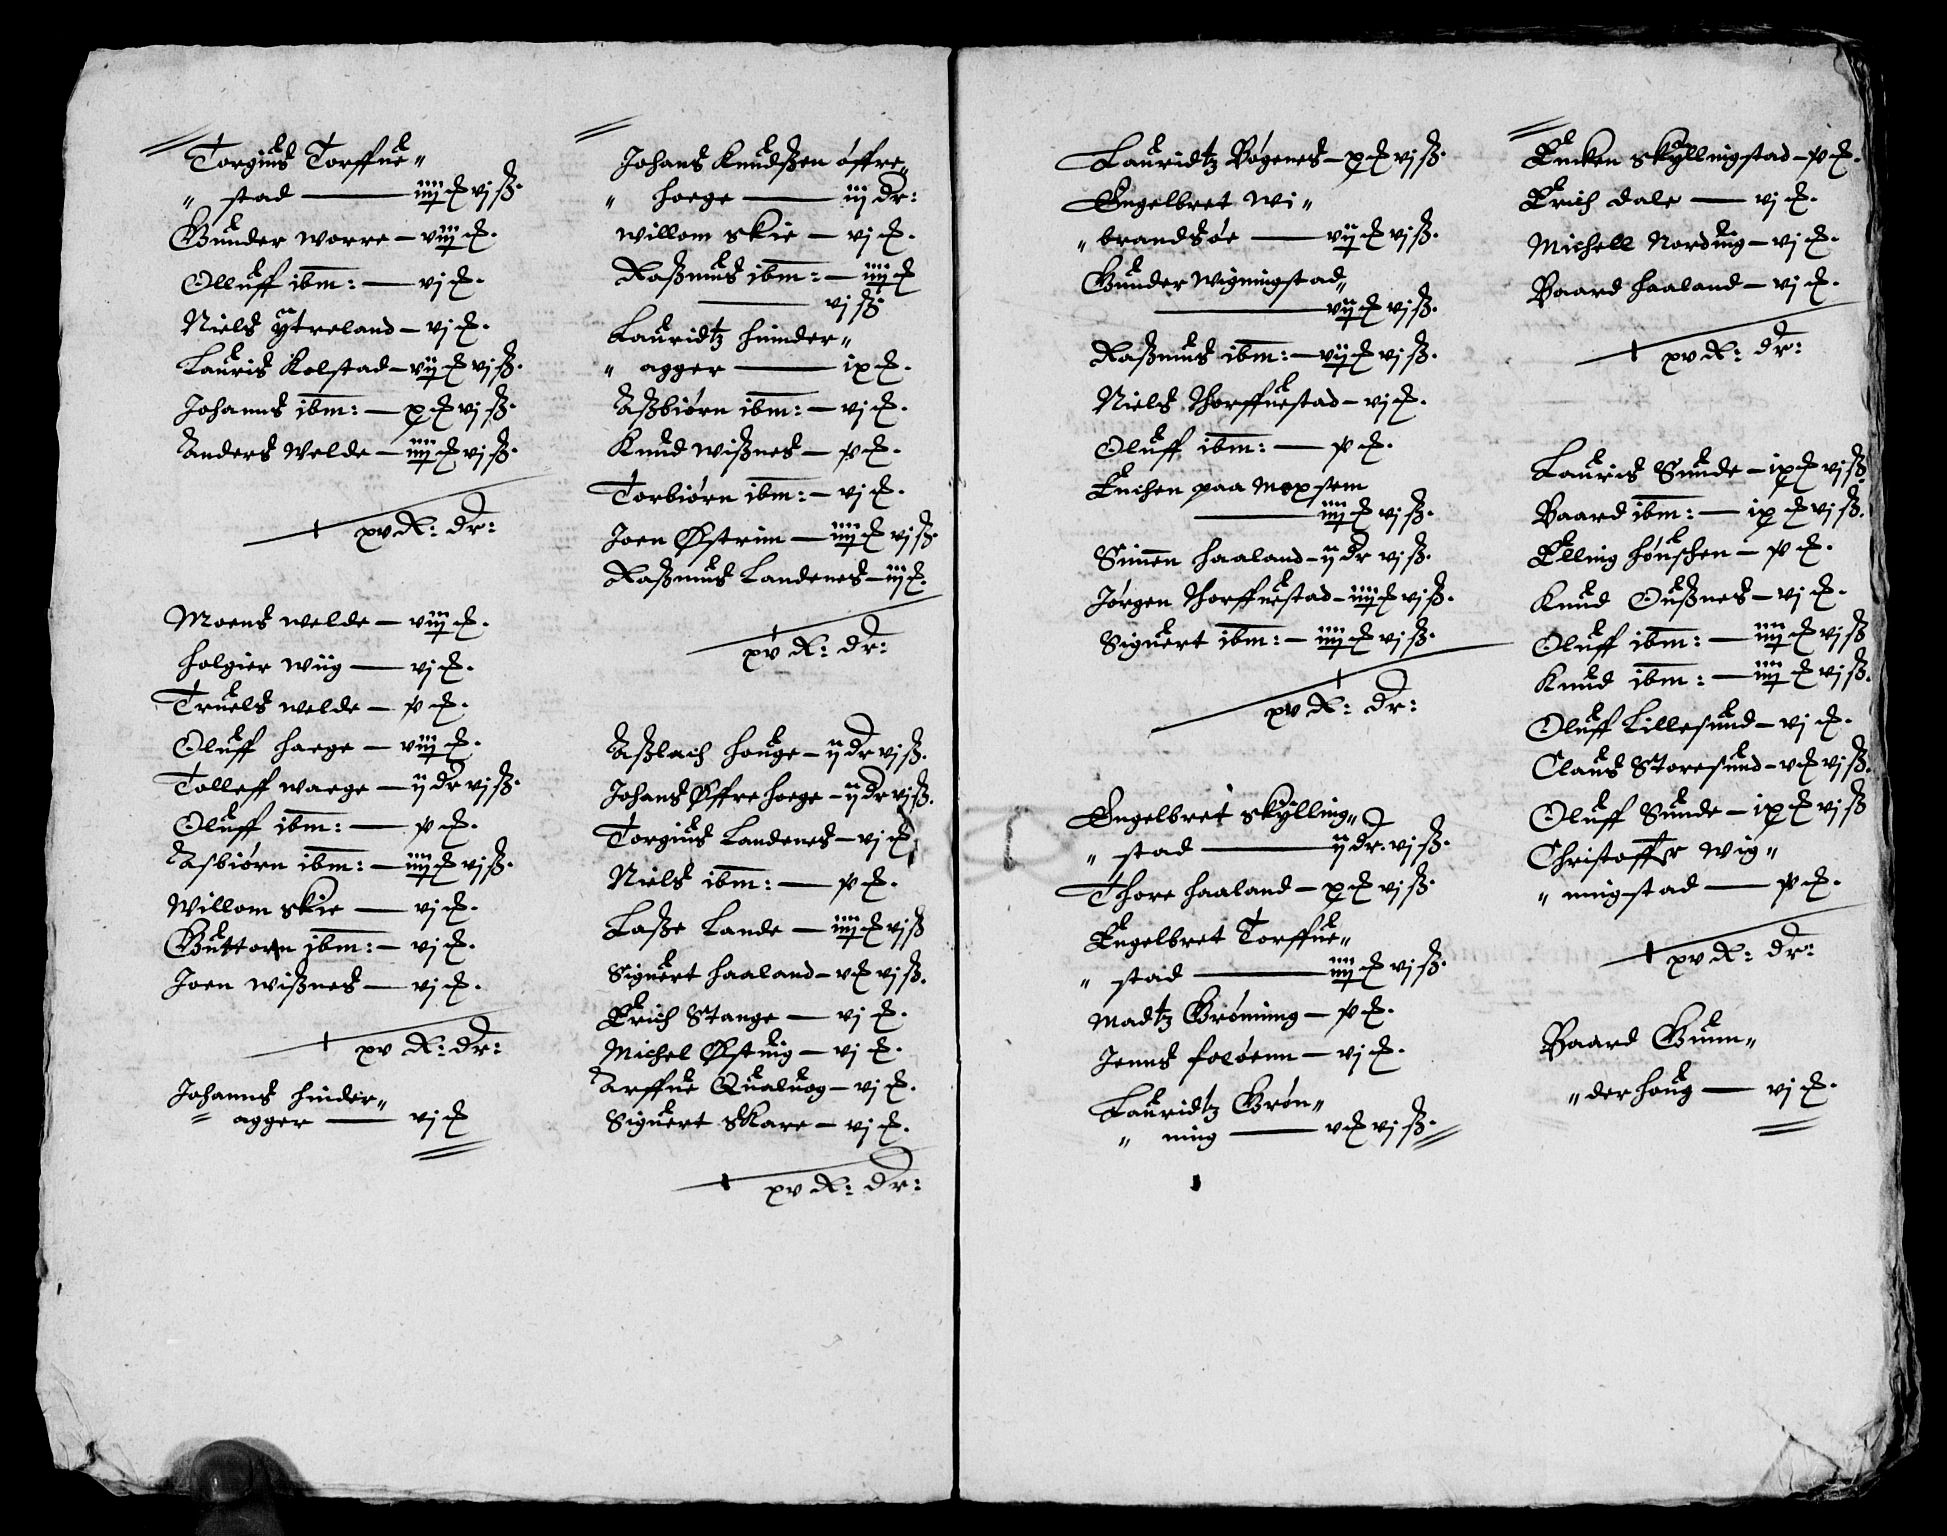 Torgius Torffue„
„ stad — iiij ₰ vj ß.
Gunder Worre — viij ₰.
Olluff ibm: — vj ₰.
Niels ÿtreland — vj ₰.
Lauris Kolstad — vij ₰ vj ß.
Johanns ibm: — x ₰ vj ß.
Anders Welde — iiij ₰ vj ß.
xv R: dr:
Moens Welde — viij ₰.
Holgier Wiig — vj ₰.
Truels Welde — v ₰.
Oluff Haege — viij ₰.
Tolleff Waege — ij dr vj ß.
Oluff ibm: — v ₰.
Asbiørn ibm: — iiij ₰ vj ß.
Willom Skie — vj ₰.
Guttorn ibm: — vj ₰.
Joen Wißnes — vj ₰.
xv R: dr:
Johanns Hinder„
„ agger — vj ₰
Johans Knudßen øffre„
„ Hoege — iij dr:
Willom Skie — vj ₰.
Raßmus ibm: — iiij ₰
— vj ß
Lauridtz Hinder„
„ agger — ix ₰.
Aßbiørn ibm: — vj ₰.
Knud Wißnes — v ₰.
Torbiørn ibm: — vj ₰.
Joen Østrim — iiij ₰ vj ß.
Raßmus Landenes — iij ₰.
xv R: dr:
Aßlach Houge — ij dr vj ß.
Johans Øffre Hoege — ij dr vj ß.
Torgius Landenes — vj ₰
Niels ibm: — v ₰.
Laße Lande — iiij ₰ vj ß
Siguert Haaland — v ₰ vj ß.
Erich Stange — vj ₰.
Michel Østuig — vj ₰.
Arffue Qualuog — vj ₰.
Siguert Skare — vj ₰.
xv R: dr:
Lauridtz Bøgenes — x ₰ vj ß.
Engelbret Wi„
„ brandsøe — vij ₰ vj ß.
Gunder Wigningstad„
— vij ₰ vj ß.
Raßmus ibm: — vij ₰ vj ß.
Niels Thorffuestad — vj ₰.
Oluff ibm: — v ₰.
Enchen paa Moxsem
— iiij ₰ vj ß.
Simen Haaland — ij dr vj ß.
Jørgen Thorffuestad — iiij ₰ vj ß.
Siguert ibm: — iiij ₰ vj ß.
xv R: dr:
Engelbret Skÿlling„
„ stad — ij dr. vj ß.
Thore Haaland — x ₰ vj ß.
Engelbret Torffue„
„ stad — iiij ₰ vj ß.
Madtz Grønning — v ₰.
Jenns Foløenn — vj ₰.
Lauridtz Grøn„
„ ning — v ₰ vj ß.
Encken Skÿllingstad — v ₰.
Erich Dale — vj ₰.
Michell Norduig — vj ₰.
Baard Haaland — vj ₰.
xv R: dr:
Lauris Sunde — ix ₰ vj ß.
Baard ibm: — ix ₰ vj ß.
Elling Høuschen — v ₰.
Knud Oußnes — vj ₰.
Oluff ibm: — iiij ₰ vj ß
Knud ibm: — iiij ₰ vj ß.
Oluff Lillesund — vj ₰.
Claus Storesund — v ₰ vj ß.
Oluff Sunde — ix ₰ vj ß
Christoffer Wig„
„ ningstad — v ₰.
xv R: dr:
Baard Gunn„
„ der Houg — vj ₰.